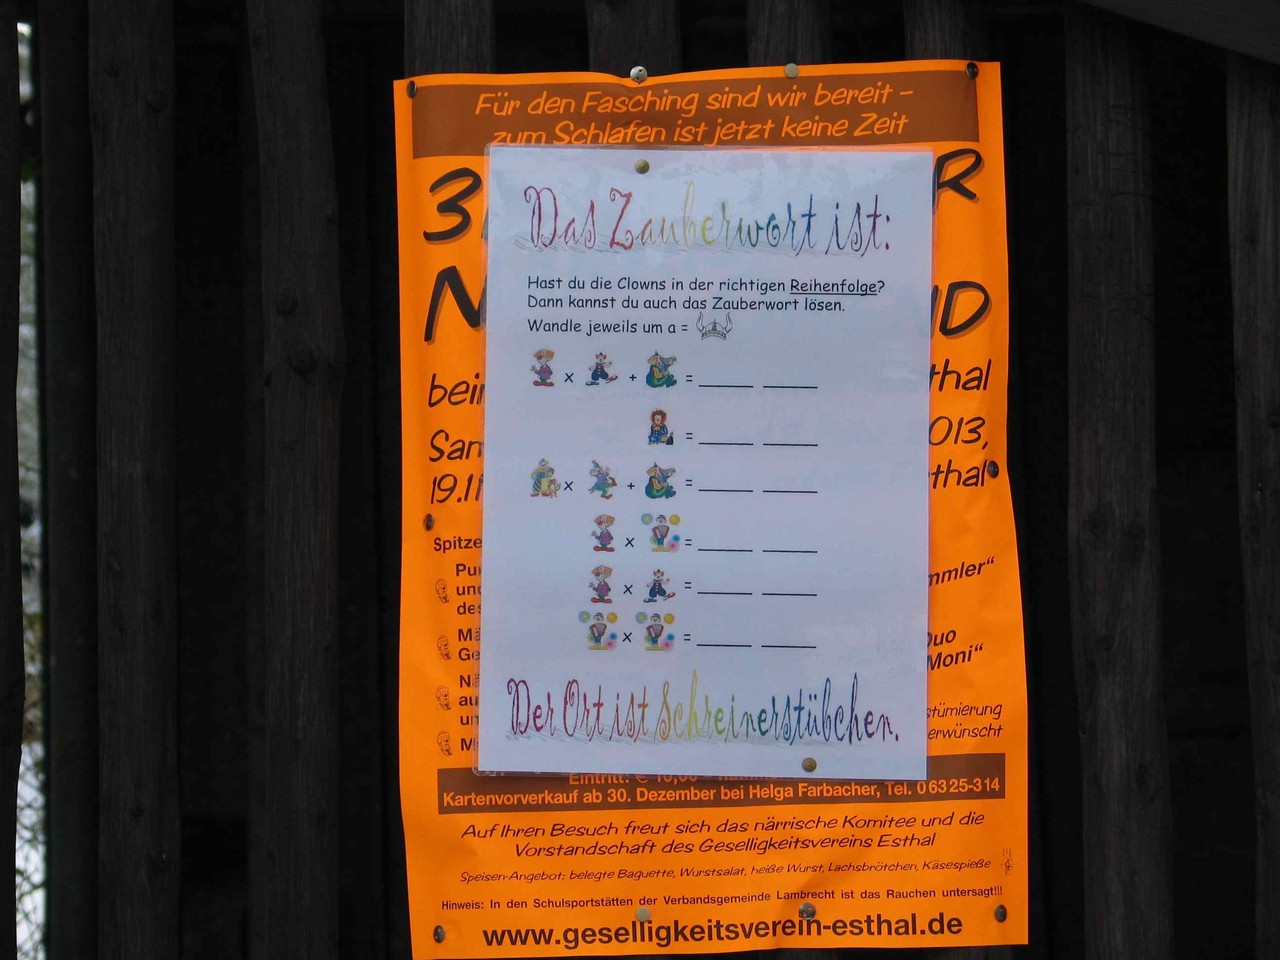 Für den Fasching sind wir bereit -
zum Schlafen ist jetzt keine Zeit
Das Zauberwort ist:
Hast du die Clowns in der richtigen Reihenfolge?
Dann kannst du auch das Zauberwort lösen.
Wandle jeweils um a =
x + =
=
x + =
x =
x =
x =
Der Ort ist Schreinerstübchen.
Kartenvorverkauf ab 30. Dezember bei Helga Farbacher, Tel. 0 63 25-314
Auf Ihren Besuch freut sich das närrische Komitee und die
Vorstandschaft des Geselligkeitsvereins Esthal
Speisen-Angebot: belegte Baguette, Wurstsalat, heiße Wurst, Lachsbrötchen, Käsespieße
Hinweis: In den Schulsportstätten der Verbandsgemeinde Lambrecht ist das Rauchen untersagt!!!
www.geselligkeitsverein-esthal.de